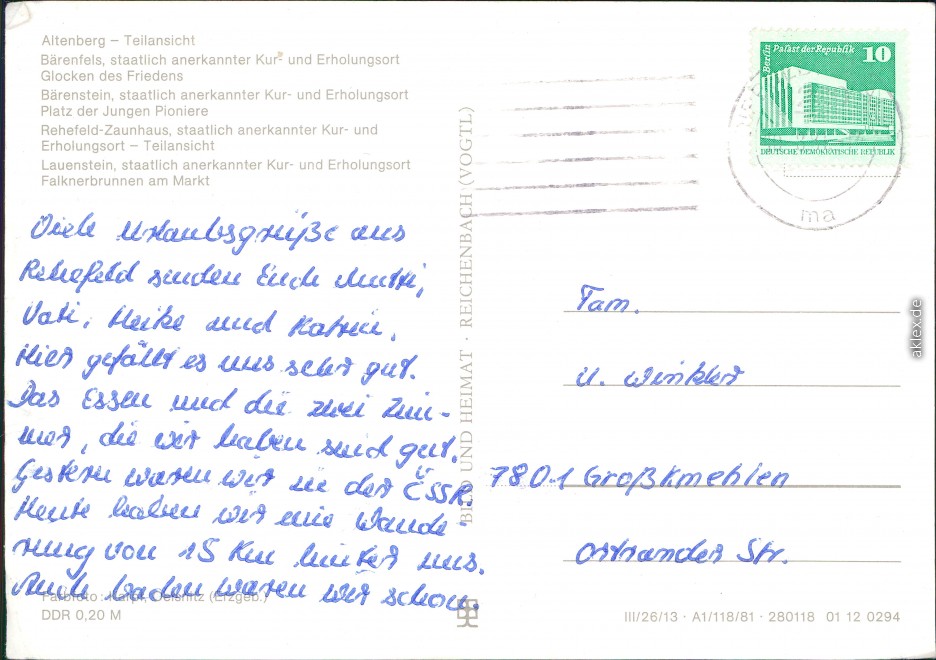 Altenberg – Teilansicht
Bärenfels, staatlich anerkannter Kur- und Erholungsort
Glocken des Friedens
Bärenstein, staatlich anerkannter Kur- und Erholungsort
Platz der Jungen Pioniere
Rehefeld-Zaunhaus, staatlich anerkannter Kur- und
Erholungsort – Teilansicht
Lauenstein, staatlich anerkannter Kur- und Erholungsort
Falknerbrunnen am Markt
Viele Urlaubsgrüße aus
Rehefeld senden Euch Mutti,
Vati, Heike und Katrin.
Hier gefällt es uns sehr gut.
Das Essen und die zwei Zim-
mer, die wir haben sind gut.
Gestern waren wir in der ČSSR.
Heute haben wir eine Wande-
rung von 15 Km hinter uns.
Auch baden waren wir schon.
Farbfoto: Karpf, Oelsnitz (Erzgeb.)
DDR 0,20 M
BILD UND HEIMAT · REICHENBACH (VOGTL)
Berlin
Palast der Republik
10
DEUTSCHE DEMOKRATISCHE REPUBLIK
ma
Fam.
U. Winkler
7801 Großkmehlen
Ortrander Str.
III/26/13 · A1/118/81 · 280118 01 12 0294
aklex.de